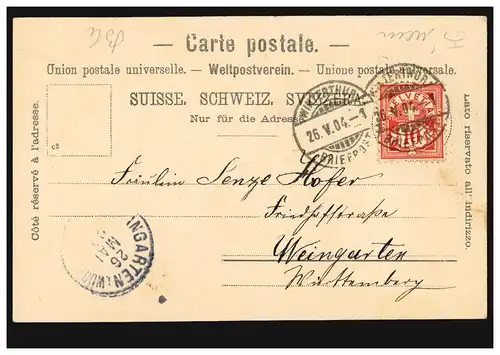 Carte postale.
Union postale universelle. — Weltpostverein. — Unione postale universale.
SUISSE. SCHWEIZ. SVIZZERA.
Nur für die Adresse
Côté réservé à l'adresse.
Lato riservato all' indirizzo.
WINTERTHUR
26.V.04.-1
BRIEFPOST
HELVETIA
10
Fräulein Senze Hofer
Friedhofstraße
Weingarten
Württemberg
WEINGARTEN (WÜRTT
26
MAI